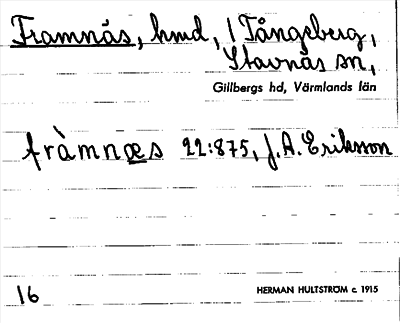 Framnäs, hmd, / Tångeberg,
Stavnäs sn,
Gillbergs hd, Värmlands län
fràmnæs 22:875, J.A. Eriksson
16
HERMAN HULTSTRÖM c. 1915